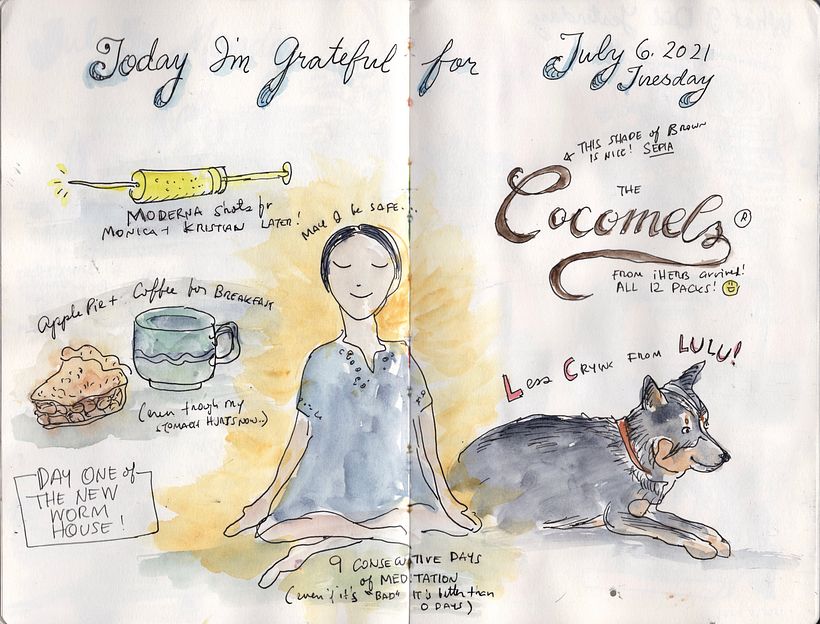 Today I'm Grateful for
July 6. 2021
Tuesday
MODERNA shots for
MONICA + KRISTIAN LATER!
MAY I be SAFE...
THIS SHADE of BROWN
IS NICE! SEPIA
THE
Cocomels ®
FROM iHERB arrived!
ALL 12 PACKS!
Apple Pie + Coffee for BREAKFAST
(even though my
STOMACH HURTS NOW..)
Less CRYING FROM LULU!
DAY ONE of
THE NEW
WORM
HOUSE!
9 CONSECUTIVE DAYS
of MEDITATION
(even if it's "BAD" IT'S better than
0 DAYS)